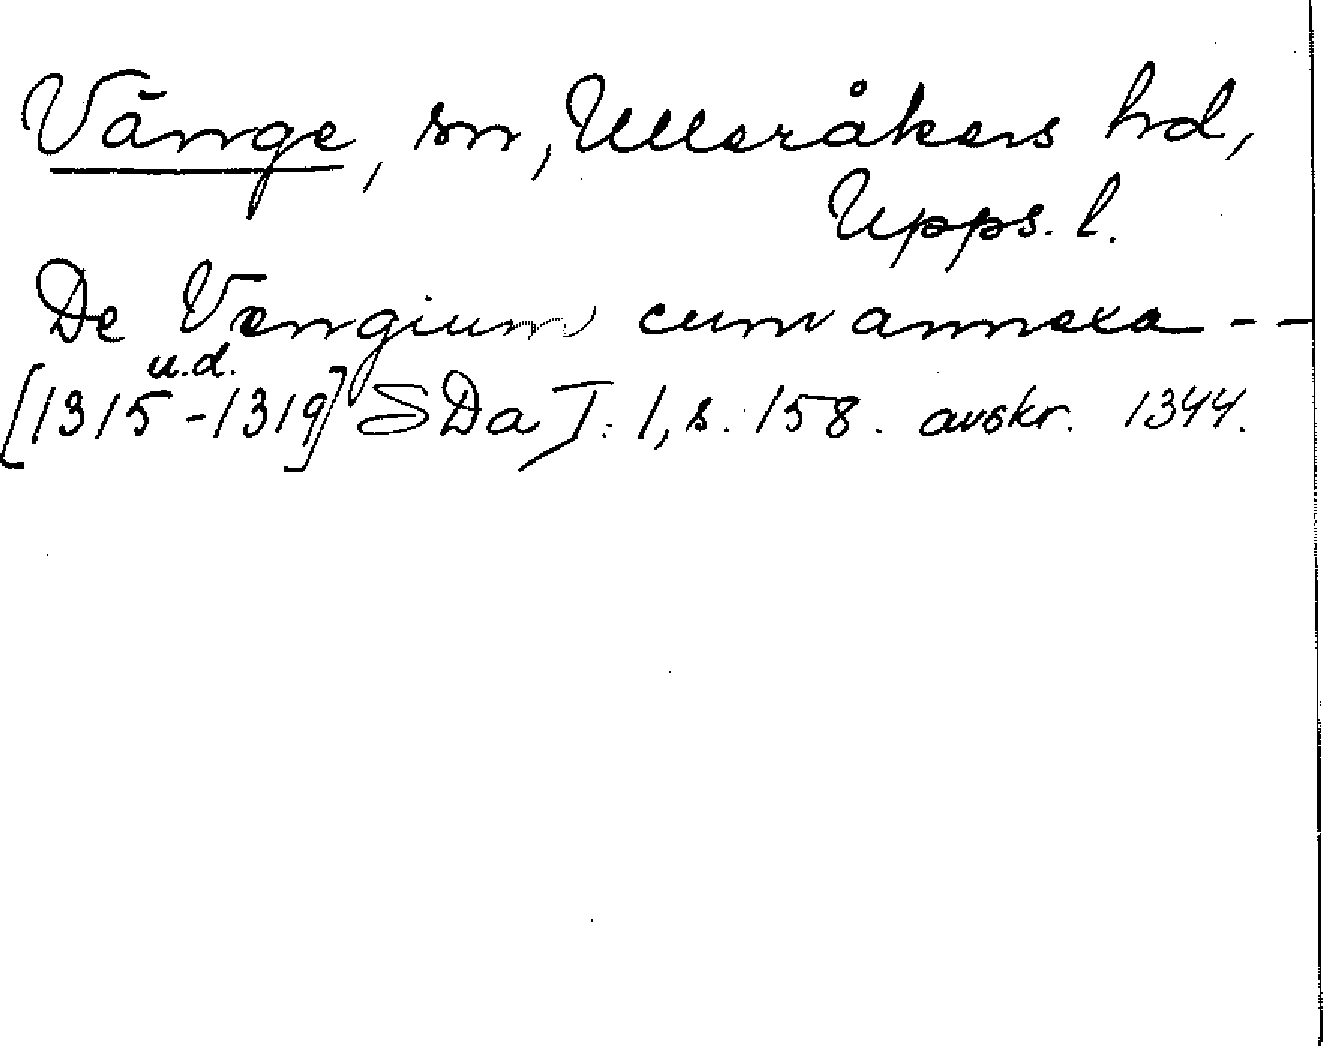 Vänge, sn, Ulleråkers hd,
Upps. l.
De Vængium cum annexa --
u.d.
[1315-1319] SDa I: 1, s. 158. avskr. 1344.